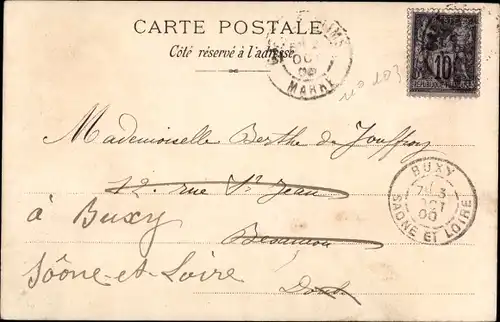 CARTE POSTALE
Côté réservé à l'adresse
OCT
MARNE
10
no 103
Mademoiselle Berthe de Jouffroy
12. rue St Jean
à Buxy
Besançon
Saône-et-Loire
Doubs
BUXY
OCT
00
SAONE ET LOIRE